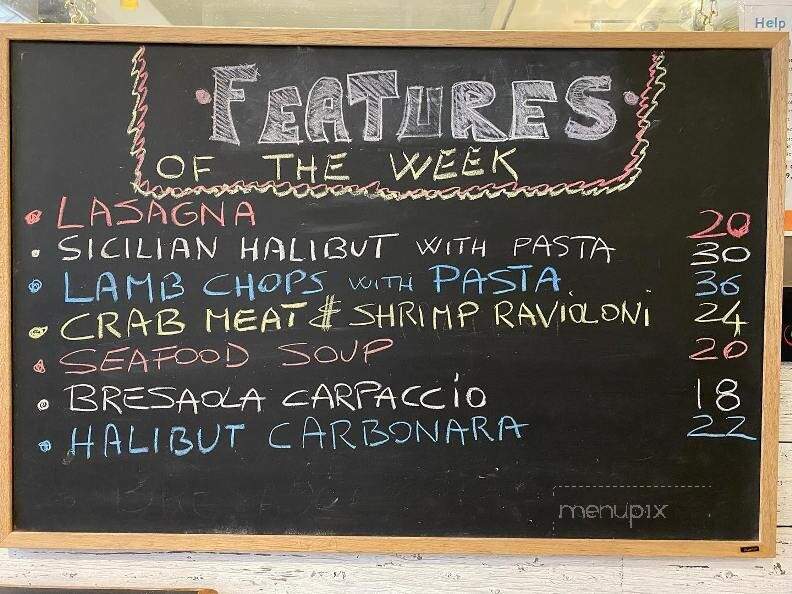 Help
FEATURES
OF THE WEEK
LASAGNA 20
SICILIAN HALIBUT WITH PASTA 30
LAMB CHOPS WITH PASTA 36
CRAB MEAT & SHRIMP RAVIOLONI 24
SEAFOOD SOUP 20
BRESAOLA CARPACCIO 18
HALIBUT CARBONARA 22
menupix